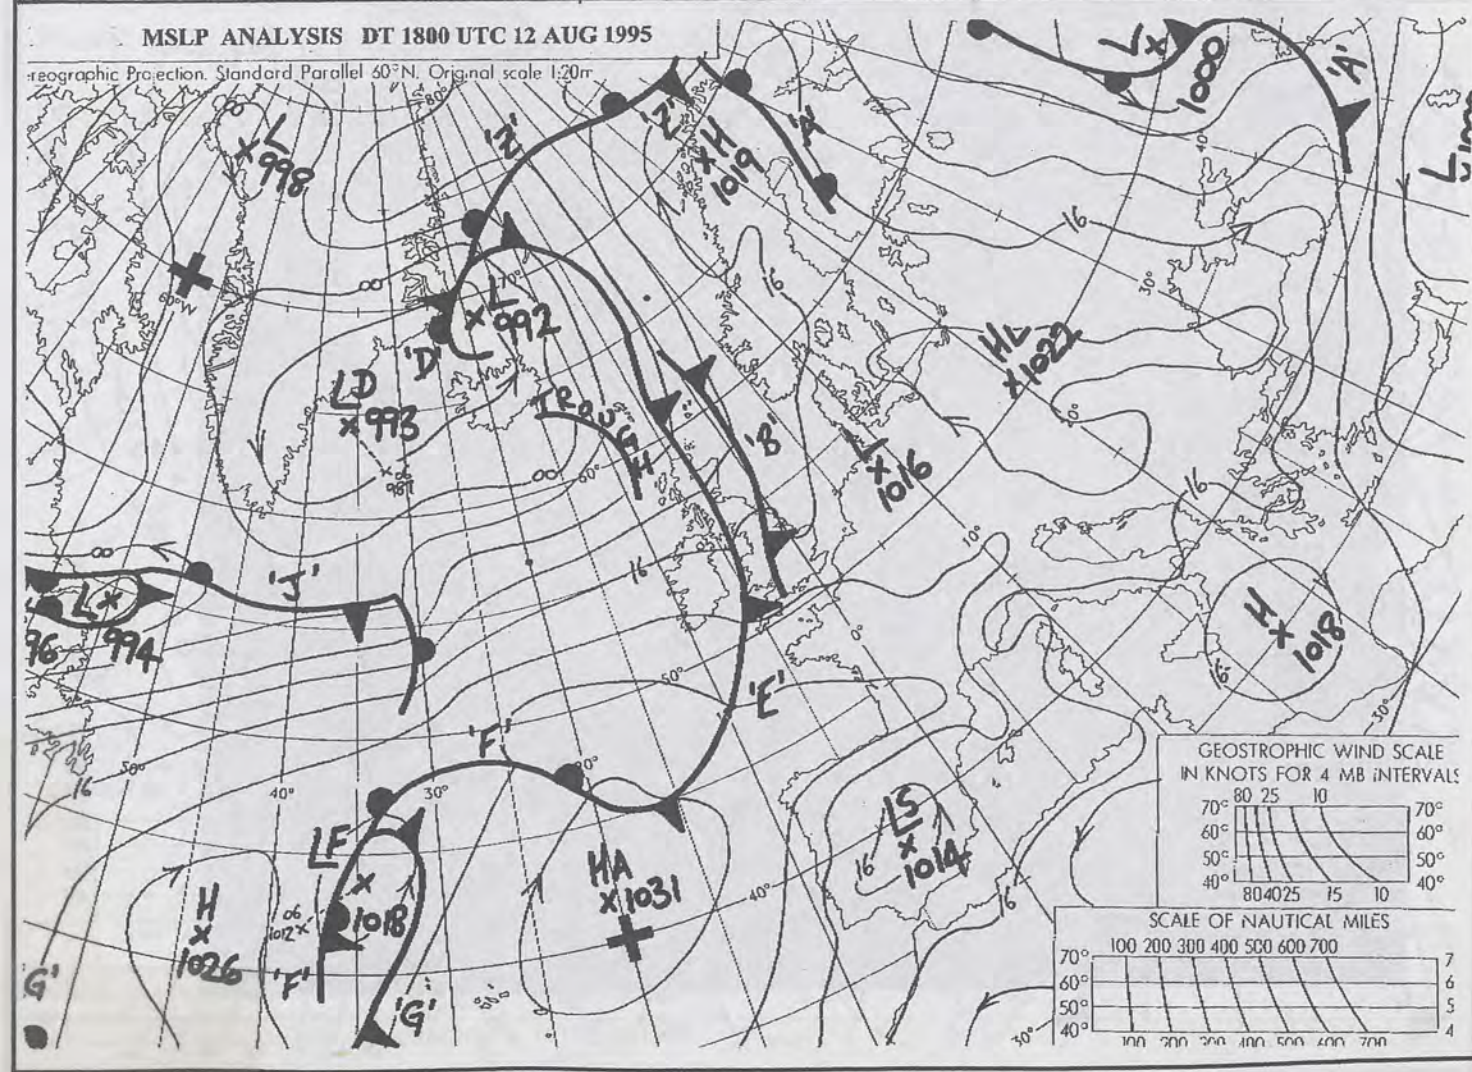 MSLP ANALYSIS DT 1800 UTC 12 AUG 1995
reographic Projection. Standard Parallel 60°N. Original scale 1:20m
80°
L
998
60°W
'Z'
'Z'
H
1019
'A'
L
1000
'A'
40°
L
16
30°
16
70°
L
992
'D'
LD
993
06
987
TROUGH
60°
'B'
HL
1022
10°
L
1016
16
10°
16
'J'
L
994
96
0°
50°
'E'
'F'
H
1018
16
30°
16
50°
40°
30°
20°
LF
1018
06
1012
H
1026
'G'
'F'
'G'
HA
1031
40°
LS
1014
16
16
30°
GEOSTROPHIC WIND SCALE
IN KNOTS FOR 4 MB INTERVALS
80 25 10
70° 70°
60° 60°
50° 50°
40° 40°
80 40 25 15 10
SCALE OF NAUTICAL MILES
100 200 300 400 500 600 700
70° 7
60° 6
50° 5
40° 4
100 200 300 400 500 600 700